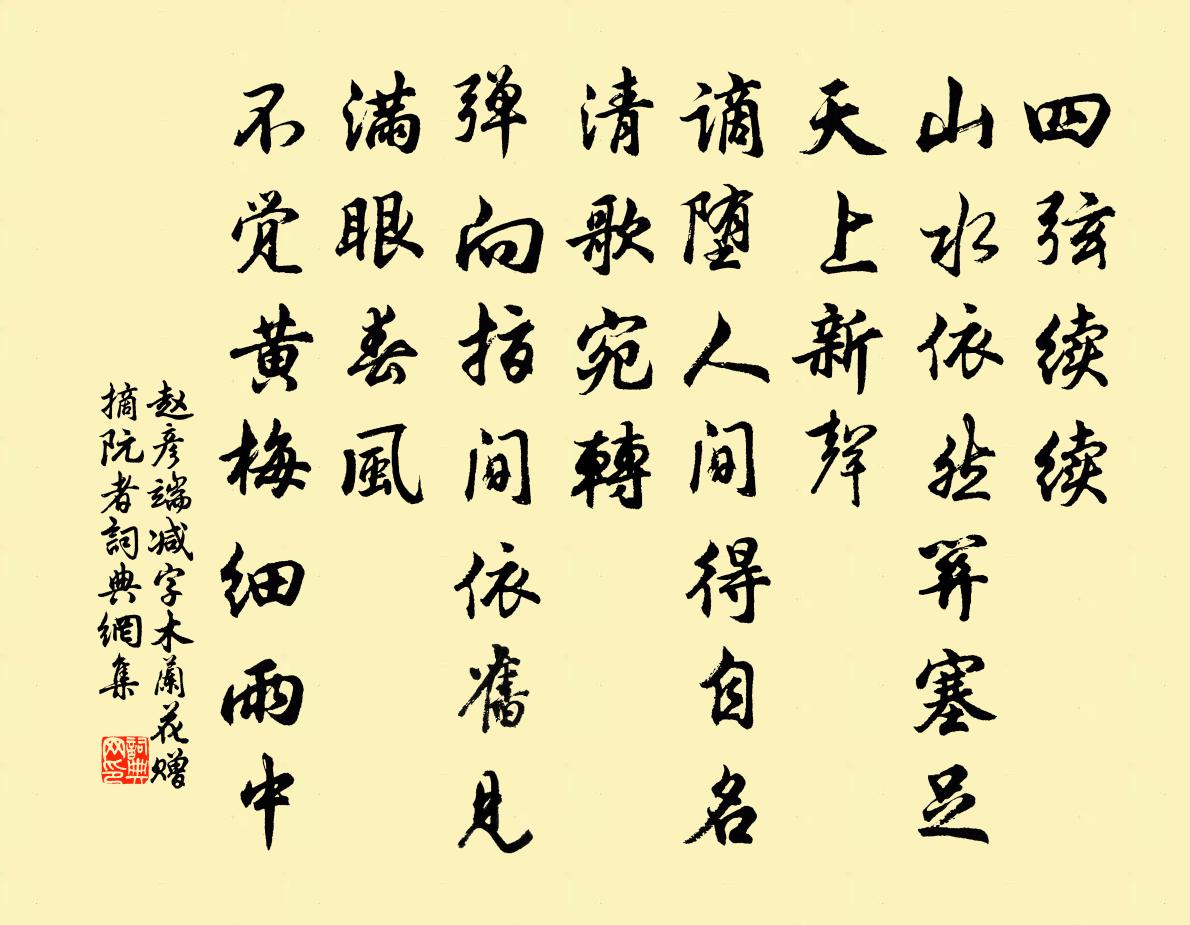 四弦续续
山水依然关塞足
天上新聲
谪堕人间得自名
清歌宛轉
弹向指间依舊见
满眼春風
不觉黄梅细雨中
赵彦端减字木蘭花赠
摘阮者詞典網集
詞典网印